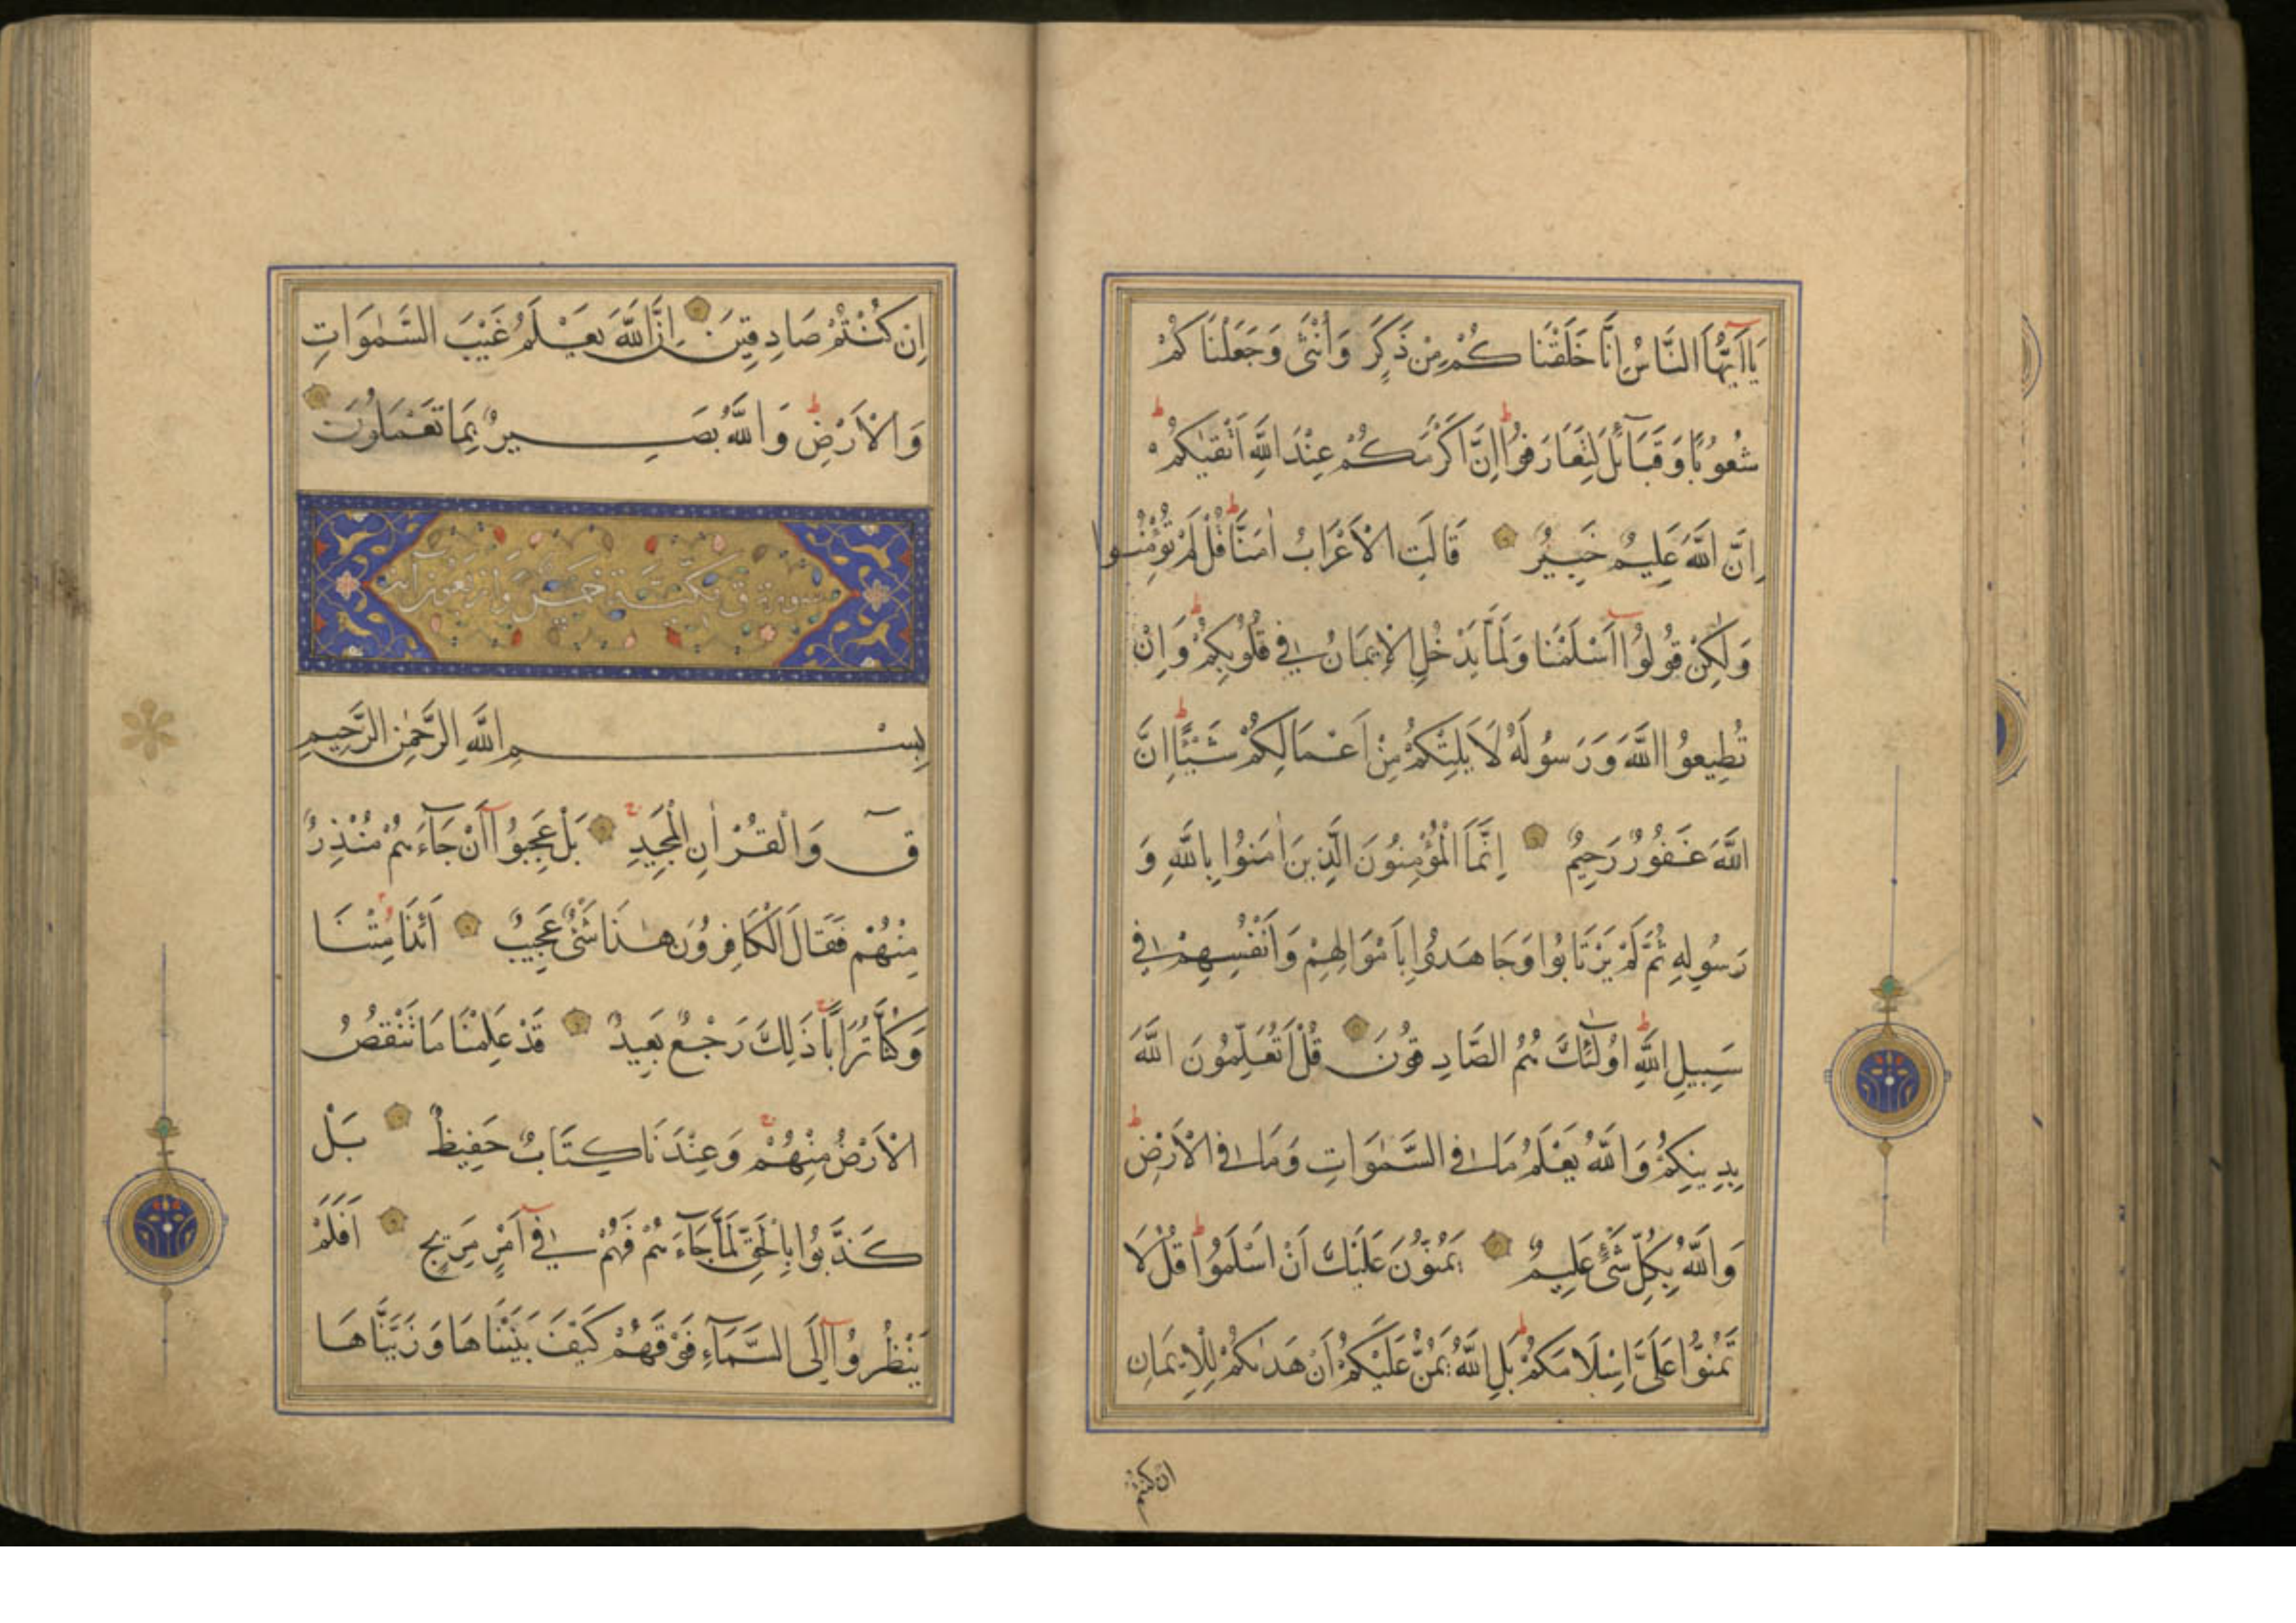 يَا أَيُّهَا النَّاسُ اِنَّا خَلَقْنَاكُمْ مِنْ ذَكَرٍ وَاُنْثَى وَجَعَلْنَاكُمْ
شُعُوبًا وَقَبَآئِلَ لِتَعَارَفُوا اِنَّ اَكْرَمَكُمْ عِنْدَ اللَّهِ اَتْقٰيكُمْ
اِنَّ اللَّهَ عَلِيمٌ خَبِيرٌ قَالَتِ الْاَعْرَابُ اٰمَنَّا قُلْ لَمْ تُؤْمِنُوا
وَلٰكِنْ قُولُوا اَسْلَمْنَا وَلَمَّا يَدْخُلِ الْاِيمَانُ فِي قُلُوبِكُمْ وَاِنْ
تُطِيعُوا اللَّهَ وَرَسُولَهُ لَا يَلِتْكُمْ مِنْ اَعْمَالِكُمْ شَيْئًا اِنَّ
اللَّهَ غَفُورٌ رَحِيمٌ اِنَّمَا الْمُؤْمِنُونَ الَّذِينَ اٰمَنُوا بِاللَّهِ وَ
رَسُولِهِ ثُمَّ لَمْ يَرْتَابُوا وَجَاهَدُوا بِاَمْوَالِهِمْ وَاَنْفُسِهِمْ فِي
سَبِيلِ اللَّهِ اُولٰئِكَ هُمُ الصَّادِقُونَ قُلْ اَتُعَلِّمُونَ اللَّهَ
بِدِينِكُمْ وَاللَّهُ يَعْلَمُ مَا فِي السَّمٰوَاتِ وَمَا فِي الْاَرْضِ
وَاللَّهُ بِكُلِّ شَيْءٍ عَلِيمٌ يَمُنُّونَ عَلَيْكَ اَنْ اَسْلَمُوا قُلْ لَا
تَمُنُّوا عَلَيَّ اِسْلَامَكُمْ بَلِ اللَّهُ يَمُنُّ عَلَيْكُمْ اَنْ هَدٰيكُمْ لِلْاِيمَانِ
ان كنتم
اِنْ كُنْتُمْ صَادِقِينَ اِنَّ اللَّهَ يَعْلَمُ غَيْبَ السَّمٰوَاتِ
وَالْاَرْضِ وَاللَّهُ بَصِيرٌ بِمَا تَعْمَلُونَ
سورة ق مكية خمس واربعون اية
بِسْمِ اللَّهِ الرَّحْمٰنِ الرَّحِيمِ
قٓ وَالْقُرْاٰنِ الْمَجِيدِ بَلْ عَجِبُوا اَنْ جَآءَهُمْ مُنْذِرٌ
مِنْهُمْ فَقَالَ الْكَافِرُونَ هٰذَا شَيْءٌ عَجِيبٌ اَئِذَا مِتْنَا
وَكُنَّا تُرَابًا ذَلِكَ رَجْعٌ بَعِيدٌ قَدْ عَلِمْنَا مَا تَنْقُصُ
الْاَرْضُ مِنْهُمْ وَعِنْدَنَا كِتَابٌ حَفِيظٌ بَلْ
كَذَّبُوا بِالْحَقِّ لَمَّا جَآءَهُمْ فَهُمْ فِي اَمْرٍ مَرِيجٍ اَفَلَمْ
يَنْظُرُوا اِلَى السَّمَآءِ فَوْقَهُمْ كَيْفَ بَنَيْنَاهَا وَزَيَّنَّاهَا